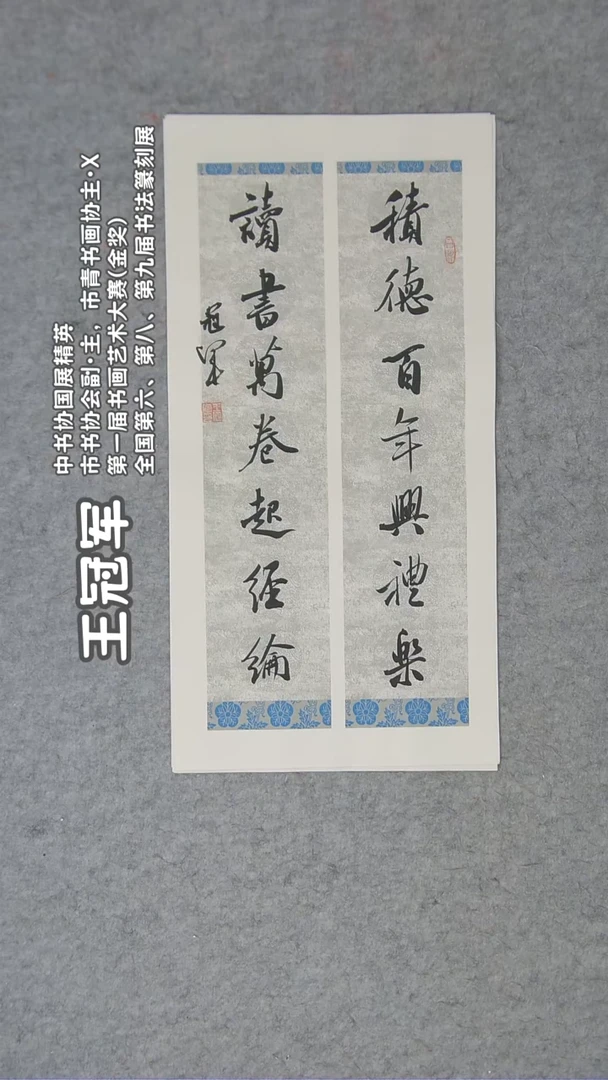 積德百年興禮樂
讀書萬卷起經綸
冠軍
王冠军
中书协国展精英
市书协会副·主，市青书画协主·X
第一届书画艺术大赛(金奖)
全国第六、第八、第九届书法篆刻展